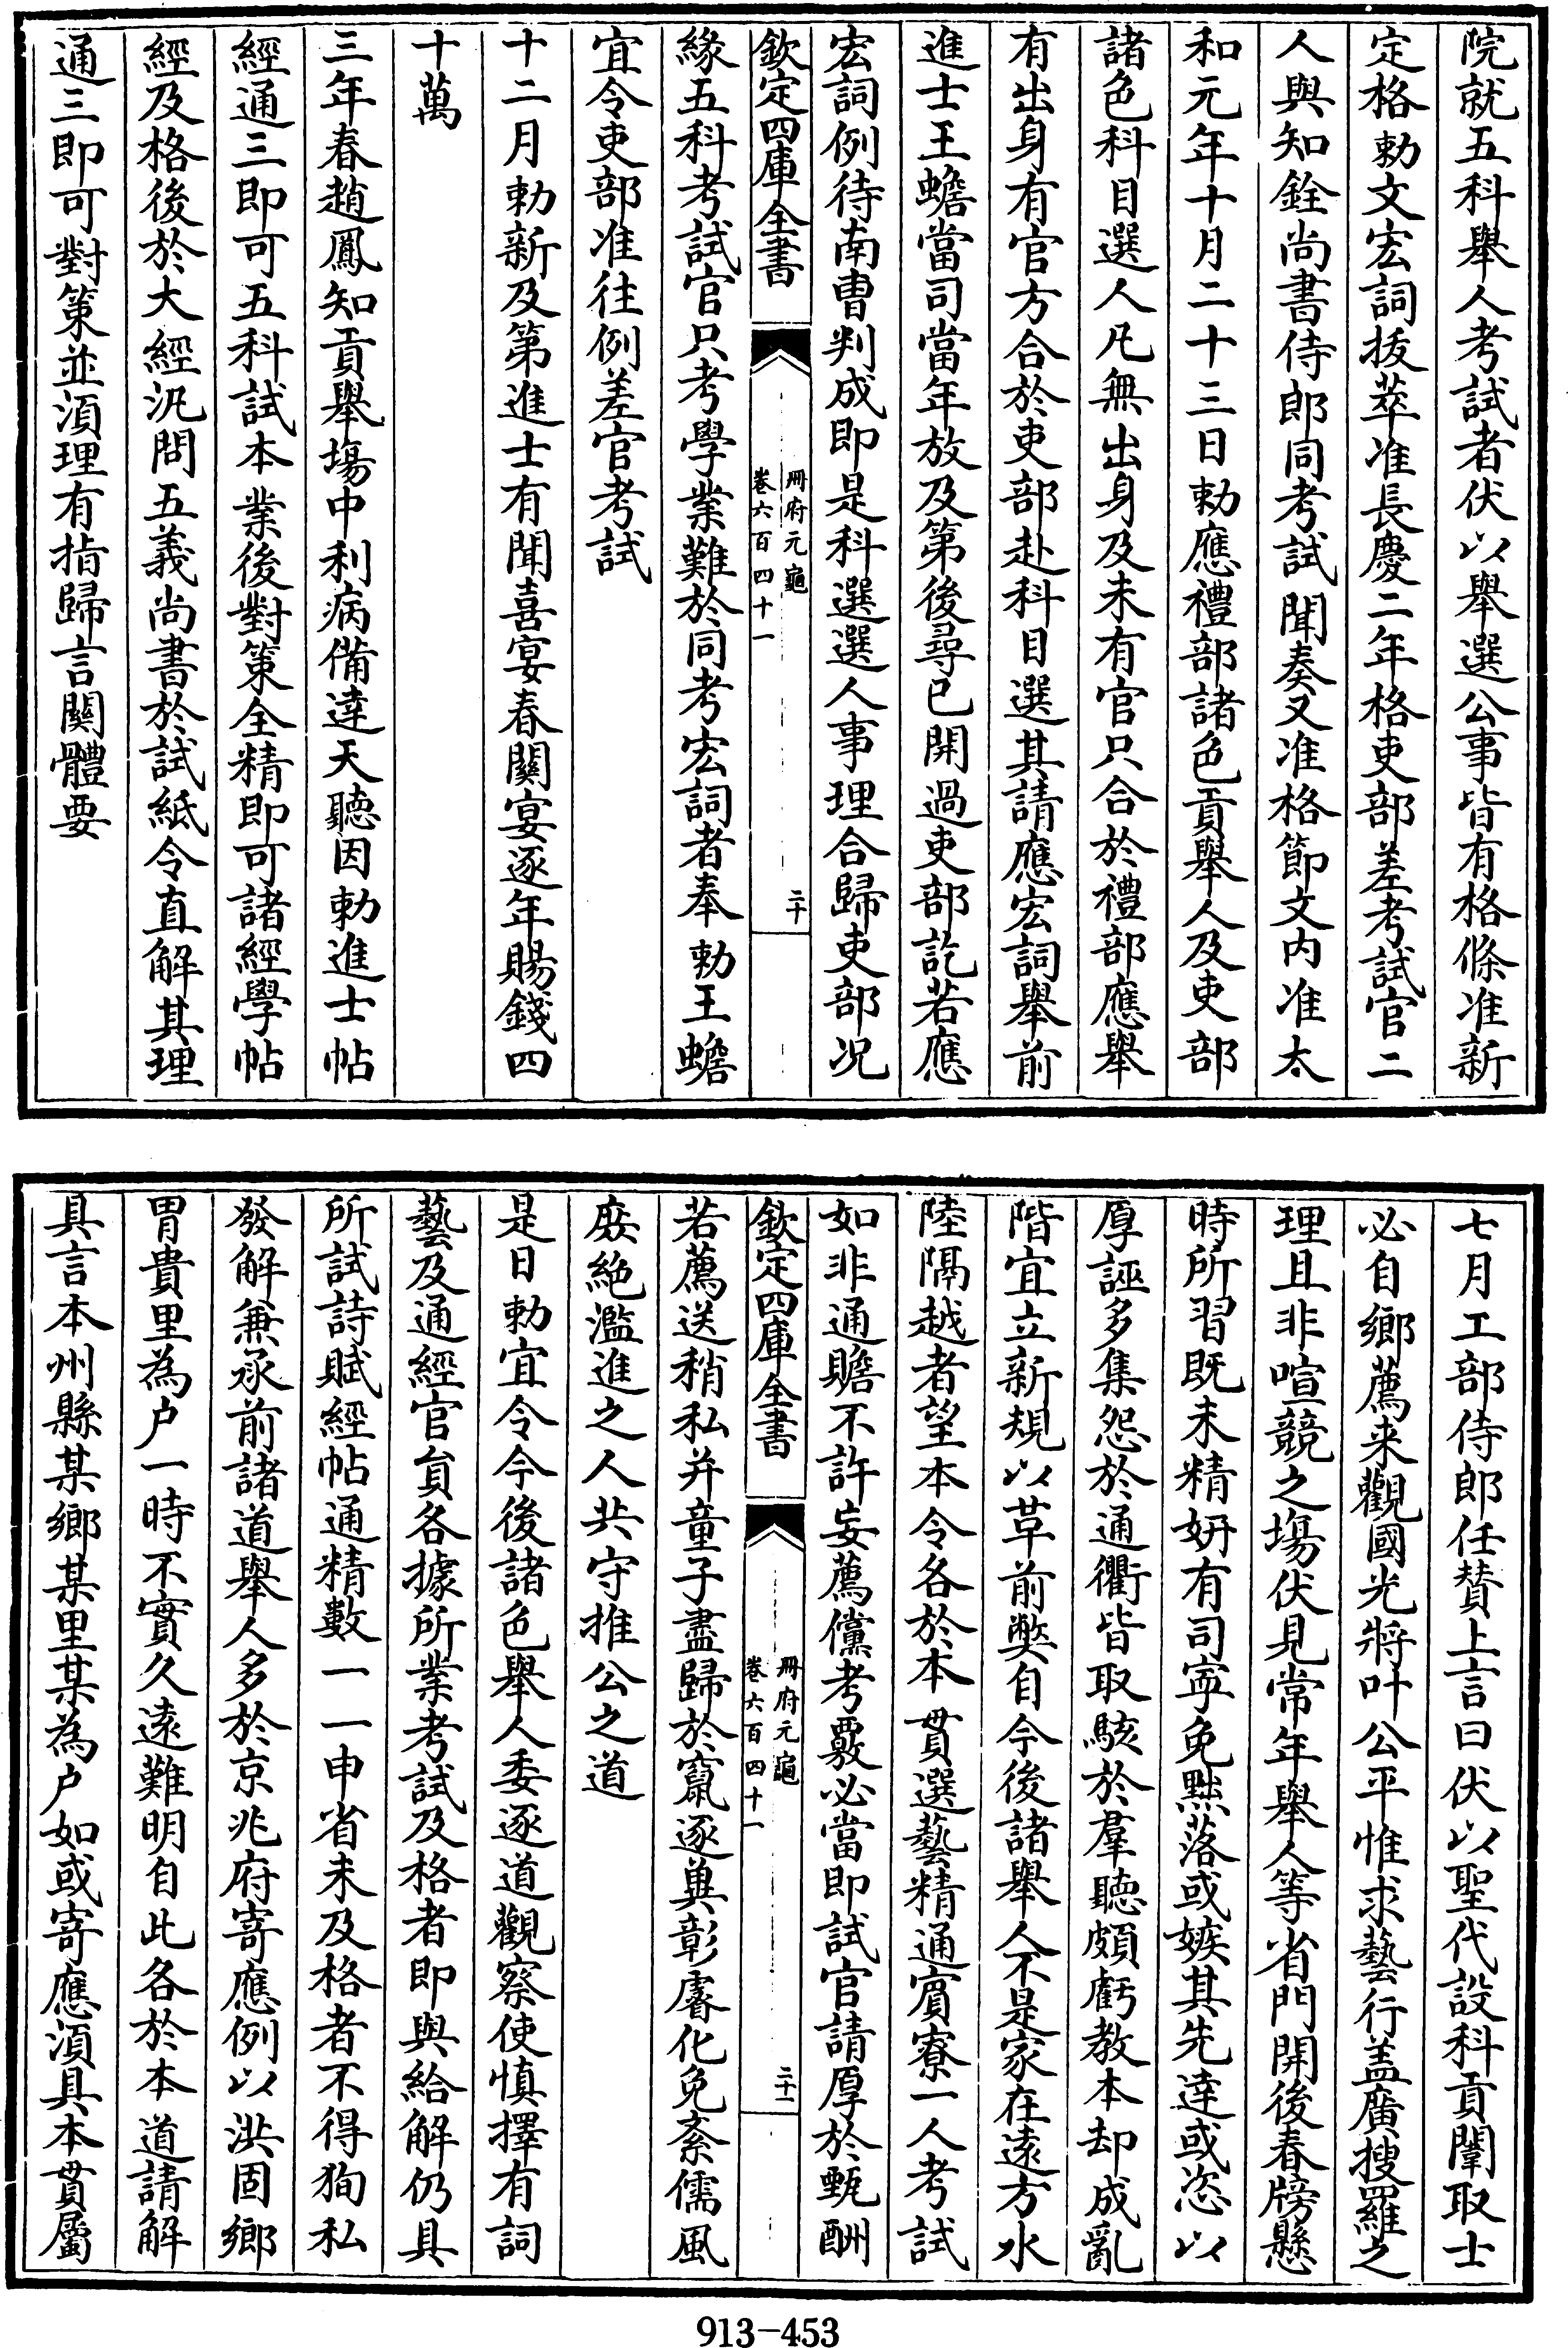 院就五科舉人考試者伏以舉選公事皆有格條准新
定格勅文宏詞拔萃准長慶二年格吏部差考試官二
人與知銓尚書侍郎同考試聞奏又准格節文内准太
和元年十月二十三日勅應禮部諸色貢舉人及吏部
諸色科目選人凡無出身及未有官只合於禮部應舉
有出身有官方合於吏部赴科目選其請應宏詞舉前
進士王蟾當司當年放及第後尋已開過吏部訖若應
宏詞例待南曹判成即是科選選人事理合歸吏部况
欽定四庫全書
冊府元龜
卷六百四十一
二十
緣五科考試官只考學業難於同考宏詞者奉勅王蟾
宜令吏部准往例差官考試
十二月勅新及第進士有聞喜宴春關宴逐年賜錢四
十萬
三年春趙鳳知貢舉場中利病備達天聽因勅進士帖
經通三即可五科試本業後對策全精即可諸經學帖
經及格後於大經汎問五義尚書於試紙令直解其理
通三即可對策並須理有指歸言關體要
七月工部侍郎任贊上言曰伏以聖代設科貢闈取士
必自鄉薦来觀國光將叶公平惟求藝行盖廣搜羅之
理且非喧競之場伏見常年舉人等省門開後春牓懸
時所習既未精妍有司寧免黜落或嫉其先達或恣以
厚誣多集怨於通衢皆取駭於羣聽頗虧教本却成亂
階宜立新規以革前獘自今後諸舉人不是家在遠方水
陸隔越者望本令各於本貫選藝精通賔寮一人考試
如非通贍不許妄薦儻考覈必當即試官請厚於甄酬
欽定四庫全書
冊府元龜
卷六百四十一
二十一
若薦送稍私并童子盡歸於竄逐兾彰睿化免紊儒風
庻絶濫進之人共守推公之道
是日勅宜令今後諸色舉人委逐道觀察使慎擇有詞
藝及通經官員各據所業考試及格者即與給解仍具
所試詩賦經帖通精數一一申省未及格者不得狥私
發解兼承前諸道舉人多於京兆府寄應例以洪固鄉
胃貴里為户一時不實久遠難明自此各於本道請解
具言本州縣某鄉某里某為户如或寄應須具本貫屬
913-453